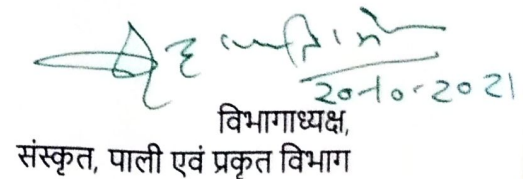 20-10-2021
विभागाध्यक्ष,
संस्कृत, पाली एवं प्रकृत विभाग